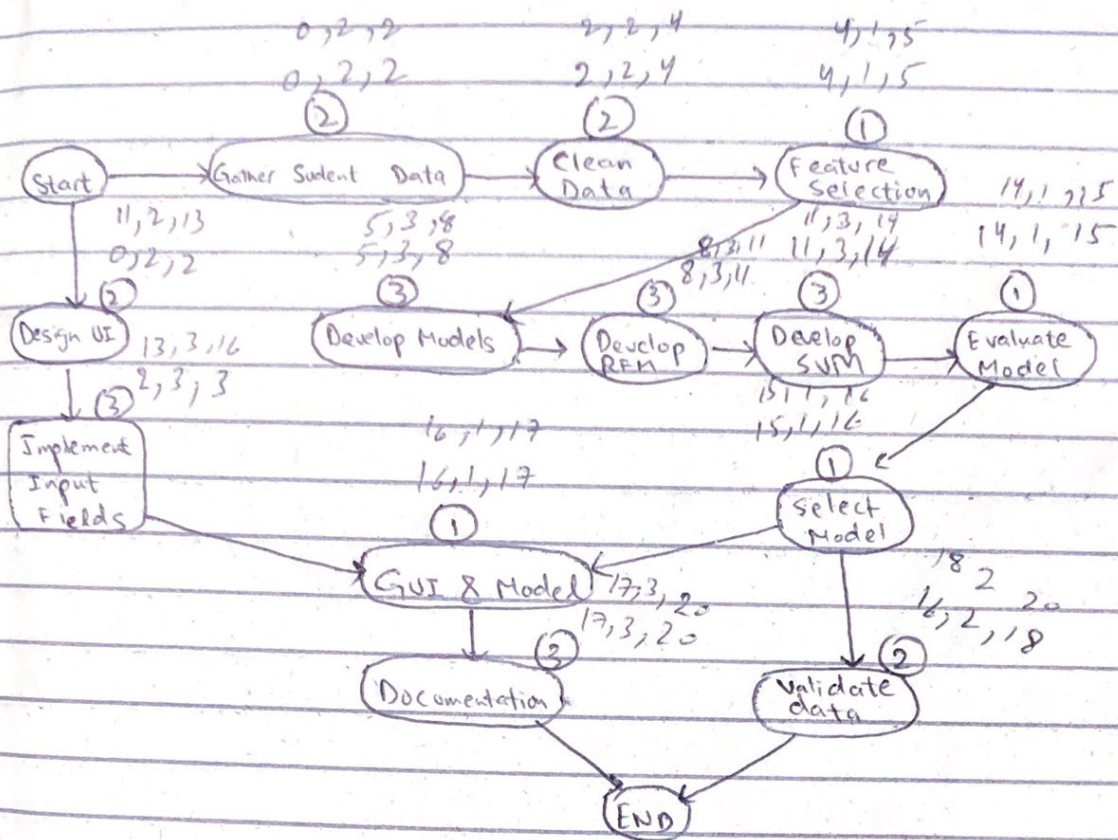 0,2,2 2,2,4 4,1,5
0,2,2 2,2,4 4,1,5
② ② ①
Start Gather Sudent Data Clean Data Feature Selection
11,2,13
0,2,2
5,3,8
5,3,8
8,3,11
8,3,11
11,3,14
11,3,14
14,1,15
14,1,15
② ③ ③ ③ ①
Design UI Develop Models Develop RFM Develop SVM Evaluate Model
13,3,16
2,3,3
③
Implement
Input
Fields
16,1,17
16,1,17
15,1,16
15,1,16
① ①
GUI & Model Select Model
17,3,20
17,3,20
18 2 20
16,2,18
③ ②
Documentation Validate data
END